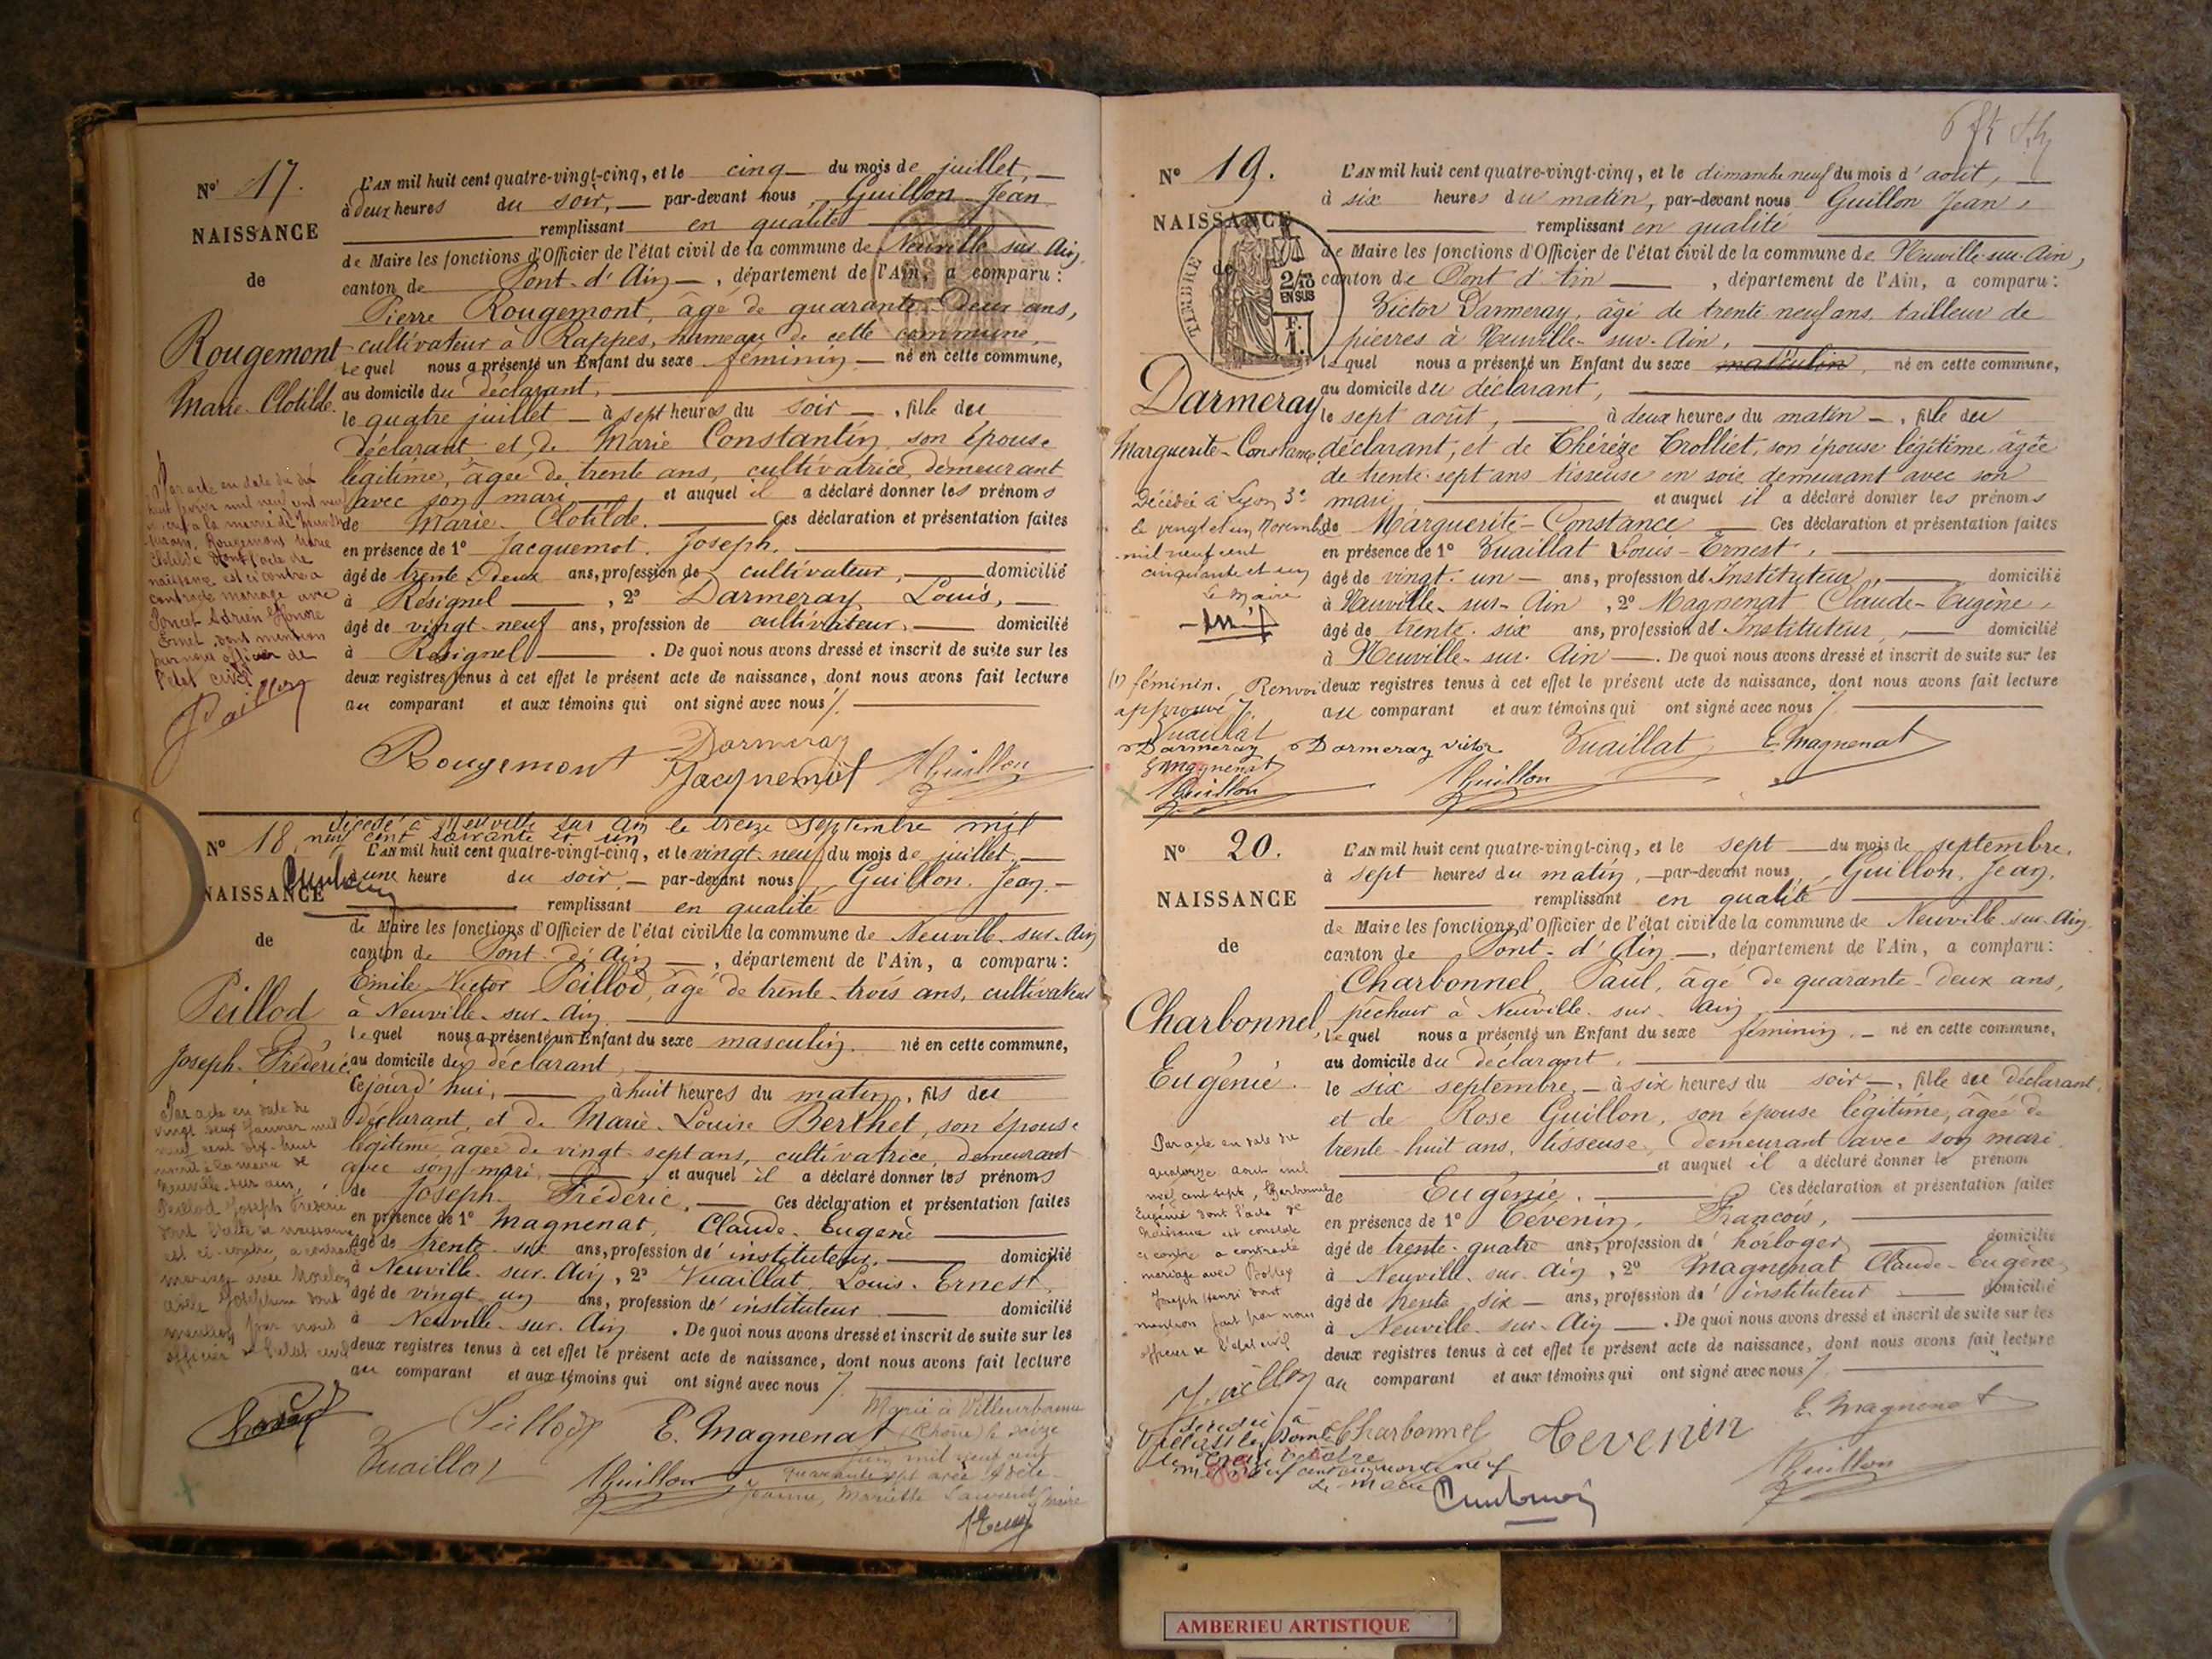 N° 17.
NAISSANCE
de
Rougemont
Marie-Clotilde.
L'AN mil huit cent quatre-vingt-cinq, et le cinq du mois de juillet,
à deux heures du soir, par-devant nous Guillon Jean
remplissant en qualité
de Maire les fonctions d'Officier de l'état civil de la commune de Neuville sur Ain,
canton de Pont-d'Ain, département de l'Ain, a comparu :
Pierre Rougemont, âgé de quarante-deux ans,
cultivateur à Rappes, hameau de cette commune,
lequel nous a présenté un Enfant du sexe féminin né en cette commune,
au domicile du déclarant,
le quatre juillet à sept heures du soir, fille du
déclarant et de Marie Constantin son épouse
légitime, âgée de trente ans, cultivatrice, demeurant
avec son mari et auquel il a déclaré donner les prénoms
de Marie-Clotilde. Ces déclaration et présentation faites
en présence de 1° Jacquemot Joseph,
âgé de trente-deux ans, profession de cultivateur, domicilié
à Resignel, 2° Darmeray Louis,
âgé de vingt-neuf ans, profession de cultivateur, domicilié
à Resignel. De quoi nous avons dressé et inscrit de suite sur les
deux registres tenus à cet effet le présent acte de naissance, dont nous avons fait lecture
au comparant et aux témoins qui ont signé avec nous
Par acte en date du dix
huit mil neuf cent
Rougemont Marie
Clotilde dont l'acte de
naissance est ci contre a
contracté mariage avec
Poncet Adrien Honoré
Ernest dont mention
par nous officier de
l'état civil
Rougemont Darmeray
Jacquemot JGuillon
décédé à Neuville sur Ain le treize septembre mil
neuf cent soixante et un
N° 18
NAISSANCE
de
Peillod
Joseph-Frédéric
L'AN mil huit cent quatre-vingt-cinq, et le vingt-neuf du mois de juillet,
à une heure du soir, par-devant nous Guillon Jean,
remplissant en qualité
de Maire les fonctions d'Officier de l'état civil de la commune de Neuville-sur-Ain
canton de Pont-d'Ain, département de l'Ain, a comparu :
Emile Victor Peillod, âgé de trente-trois ans, cultivateur
à Neuville-sur-Ain
lequel nous a présenté un Enfant du sexe masculin. né en cette commune,
au domicile du déclarant
Cejourd'hui, à huit heures du matin, fils du
déclarant et de Marie-Louise Berthet, son épouse
légitime âgée de vingt-sept ans, cultivatrice, demeurant
avec son mari et auquel il a déclaré donner les prénoms
de Joseph-Frédéric, Ces déclaration et présentation faites
en présence de 1° Magnenat, Claude-Eugène
âgé de trente-six ans, profession d'instituteur, domicilié
à Neuville-sur-Ain, 2° Vuaillat, Louis-Ernest,
âgé de vingt-un ans, profession d'instituteur domicilié
à Neuville-sur-Ain. De quoi nous avons dressé et inscrit de suite sur les
deux registres tenus à cet effet le présent acte de naissance, dont nous avons fait lecture
au comparant et aux témoins qui ont signé avec nous
Par acte en date du
vingt deux janvier mil
neuf cent dix-huit
inscrit à la mairie de
Neuville-sur-ain,
Peillod Joseph Frédéric
dont l'acte de naissance
est ci-contre, a contracté
mariage avec
Joséphine dont
mention par nous
officier de l'état civil
Peillod E. Magnenat
Vuaillat JGuillon
Marié à Villeurbanne
(Rhône) le seize
juin mil neuf cent
quarante sept avec Adèle
Jeanne, Mariette
N° 19.
NAISSANCE
de
TIMBRE
2/10
EN SUS
F.
1.
Darmeray
Marguerite-Constance
L'AN mil huit cent quatre-vingt-cinq, et le dimanche neuf du mois d'août,
à six heures du matin, par-devant nous Guillon Jean,
remplissant en qualité
de Maire les fonctions d'Officier de l'état civil de la commune de Neuville-sur-Ain,
canton de Pont d'Ain, département de l'Ain, a comparu :
Victor Darmeray, âgé de trente neuf ans, tailleur de
pierres à Neuville-sur-Ain,
lequel nous a présenté un Enfant du sexe masculin, né en cette commune,
au domicile du déclarant,
le sept août, à deux heures du matin, fille du
déclarant, et de Thérèze Trolliet, son épouse légitime âgée
de trente-sept ans tisseuse en soie demeurant avec son
mari, et auquel il a déclaré donner les prénoms
de Marguerite-Constance Ces déclaration et présentation faites
en présence de 1° Vuaillat Louis-Ernest,
âgé de vingt-un ans, profession d'Instituteur, domicilié
à Neuville-sur-Ain, 2° Magnenat Claude-Eugène,
âgé de trente-six ans, profession d'Instituteur, domicilié
à Neuville-sur-Ain. De quoi nous avons dressé et inscrit de suite sur les
deux registres tenus à cet effet le présent acte de naissance, dont nous avons fait lecture
au comparant et aux témoins qui ont signé avec nous
Décédée à Lyon 3e
le vingt et un Novembre
mil neuf cent
cinquante et un
Le Maire
(1) féminin. Renvoi
approuvé
Vuaillat
Darmeray
E Magnenat
JGuillon
Darmeray victor Vuaillat E. Magnenat
JGuillon
N° 20.
NAISSANCE
de
Charbonnel,
Eugénie.
L'AN mil huit cent quatre-vingt-cinq, et le sept du mois de septembre,
à sept heures du matin, par-devant nous, Guillon, Jean,
remplissant en qualité
de Maire les fonctions d'Officier de l'état civil de la commune de Neuville-sur-Ain,
canton de Pont-d'Ain, département de l'Ain, a comparu :
Charbonnel, Paul, âgé de quarante-deux ans,
pêcheur à Neuville-sur-Ain
lequel nous a présenté un Enfant du sexe féminin, né en cette commune,
au domicile du déclarant,
le six septembre, à six heures du soir, fille du déclarant,
et de Rose Guillon, son épouse légitime, âgée de
trente-huit ans, tisseuse, demeurant avec son mari
et auquel il a déclaré donner le prénom
de Eugénie. Ces déclaration et présentation faites
en présence de 1° Tevenin, François,
âgé de trente-quatre ans, profession d'horloger domicilié
à Neuville-sur-Ain, 2° Magnenat Claude-Eugène
âgé de trente six ans, profession d'instituteur domicilié
à Neuville-sur-Ain. De quoi nous avons dressé et inscrit de suite sur les
deux registres tenus à cet effet le présent acte de naissance, dont nous avons fait lecture
au comparant et aux témoins qui ont signé avec nous
Par acte en date du
quatorze août mil
neuf cent sept, Charbonnel
Eugénie dont l'acte de
naissance est constaté
ci contre a contracté
mariage avec Bollex
Joseph Henri dont
mention fait par nous
officier de l'état civil
Charbonnel Tevenin E. Magnenat
JGuillon
Décédée à
octobre
mil neuf cent cinquante neuf
Le Maire
AMBERIEU ARTISTIQUE